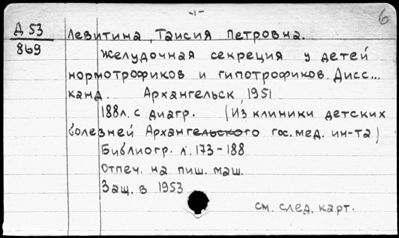 -1-
6
Д 53
869
Левитина, Таисия Петровна.
Желудочная секреция у детей
нормотрофиков и гипотрофиков. Дисс...
канд. Архангельск, 1951.
188л. с диагр. (Из клиники детских
болезней Архангельского гос. мед. ин-та)
Библиогр. л. 173-188
Отпеч. на пиш. маш.
Защ. в 1953
см. след. карт.